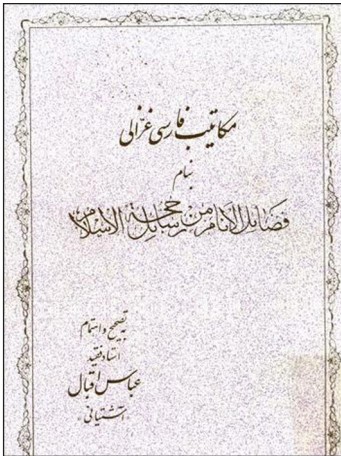 مکاتیب فارسی غزالی
بنام
فضائل الانام من رسائل حجة الاسلام
به تصحیح و اهتمام
استاد فقید
عباس اقبال
آشتیانی